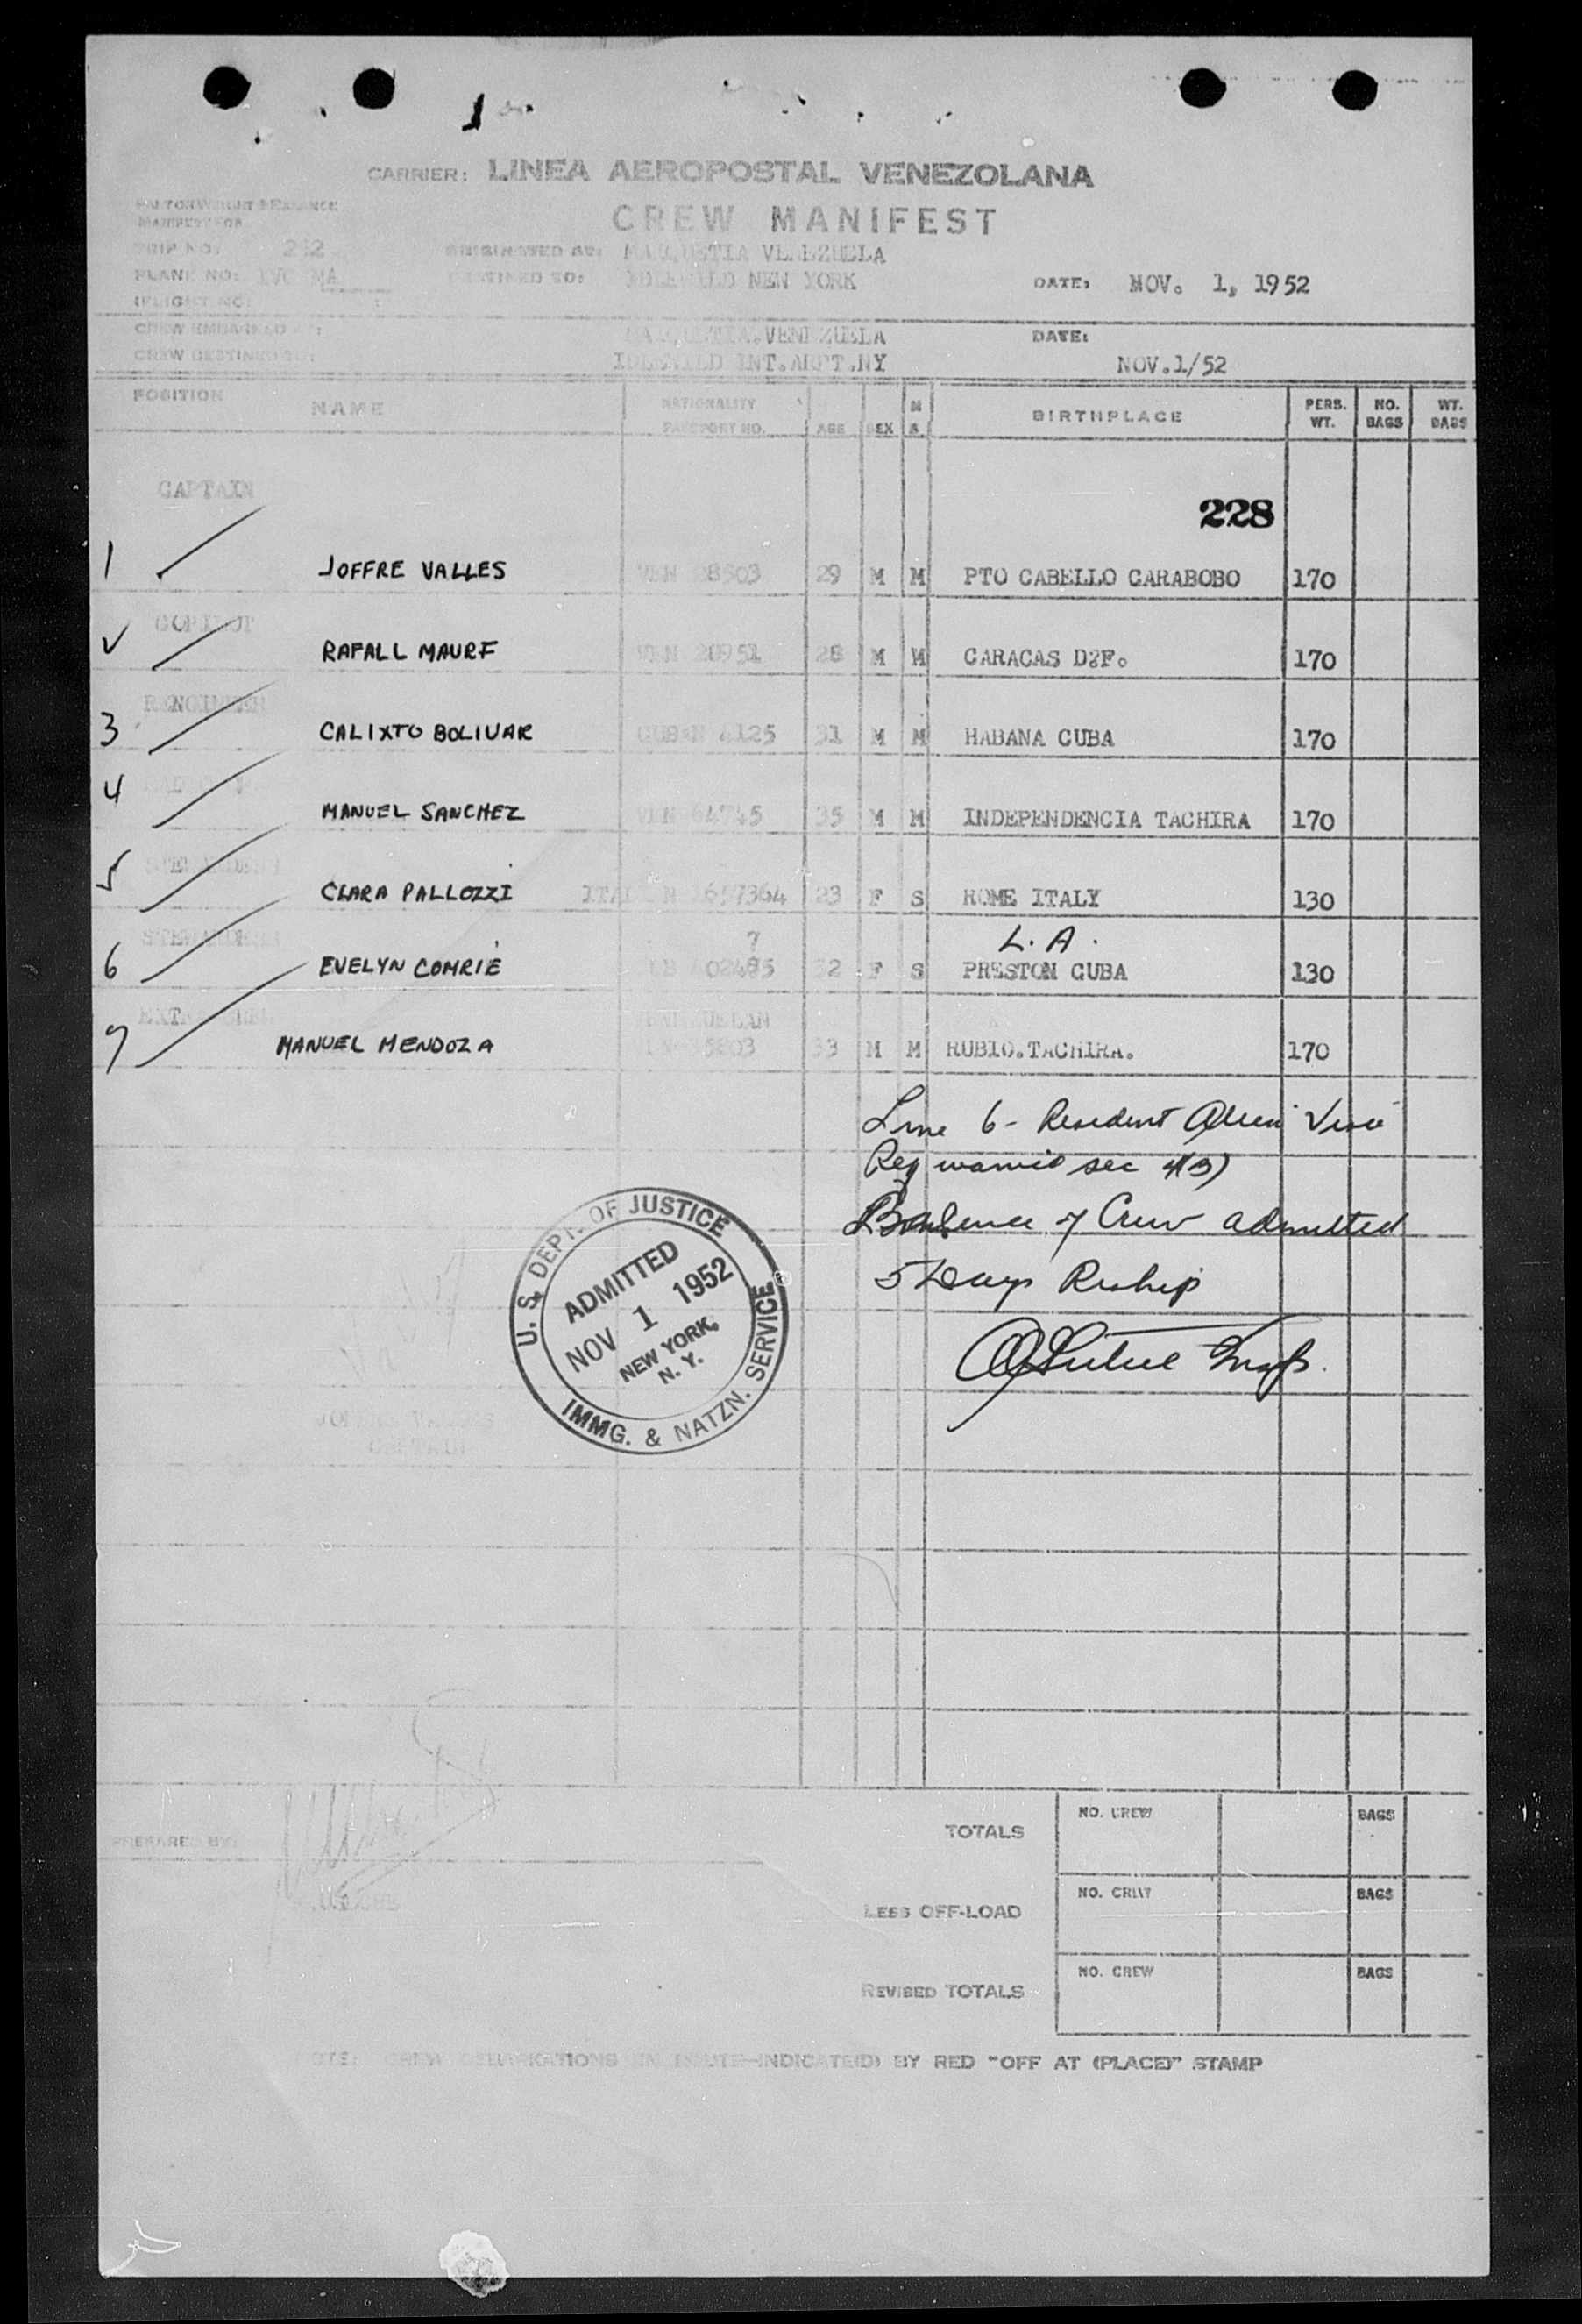 CARRIER: LINEA AEROPOSTAL VENEZOLANA
CREW MANIFEST
MANIFEST FOR
TRIP NO: 252 ORIGINATED AT: MAIQUETIA VENEZUELA
PLANE NO: YVC MA DESTINED TO: IDLEWILD NEW YORK DATE: NOV. 1, 1952
FLIGHT NO:
CREW EMBARKED AT: MAIQUETIA.VENEZUELA DATE:
CREW DESTINED TO: IDLEWILD INT.ARPT.NY NOV.1/52
POSITION NAME NATIONALITY PASSPORT NO. AGE SEX M S. BIRTHPLACE PERS. WT. NO. BAGS WT. BAGS
CAPTAIN
228
1 JOFFRE VALLES VEN 28503 29 M M PTO CABELLO CARABOBO 170
COPILOT
2 RAFALL MAURE VEN 20951 28 M M CARACAS D?F. 170
3 CALIXTO BOLIVAR CUBAN 4125 31 M M HABANA CUBA 170
4 MANUEL SANCHEZ VEN 35 M M INDEPENDENCIA TACHIRA 170
5 CLARA PALLOZZI 1657364 23 F S ROME ITALY 130
STEWARDESS 7 L.A.
6 EVELYN COMRIE 02485 F S PRESTON CUBA 130
EXTRA CREW VENEZUELAN
7 MANUEL MENDOZA 33 M M RUBIO.TACHIRA. 170
Line 6 - Resident Alien Visa
Req waived sec 4(3)
Balance of Crew admitted
5 Days Reship
U. S. DEPT. OF JUSTICE
ADMITTED
NOV 1 1952
NEW YORK,
N. Y.
IMMG. & NATZN. SERVICE
Insp.
JOFFRE VALLES
CAPTAIN
PREPARED BY:
TOTALS NO. CREW BAGS
LESS OFF-LOAD NO. CREW BAGS
REVISED TOTALS NO. CREW BAGS
NOTE: CREW EN ROUTE-INDICATE(D) BY RED "OFF AT (PLACE)" STAMP